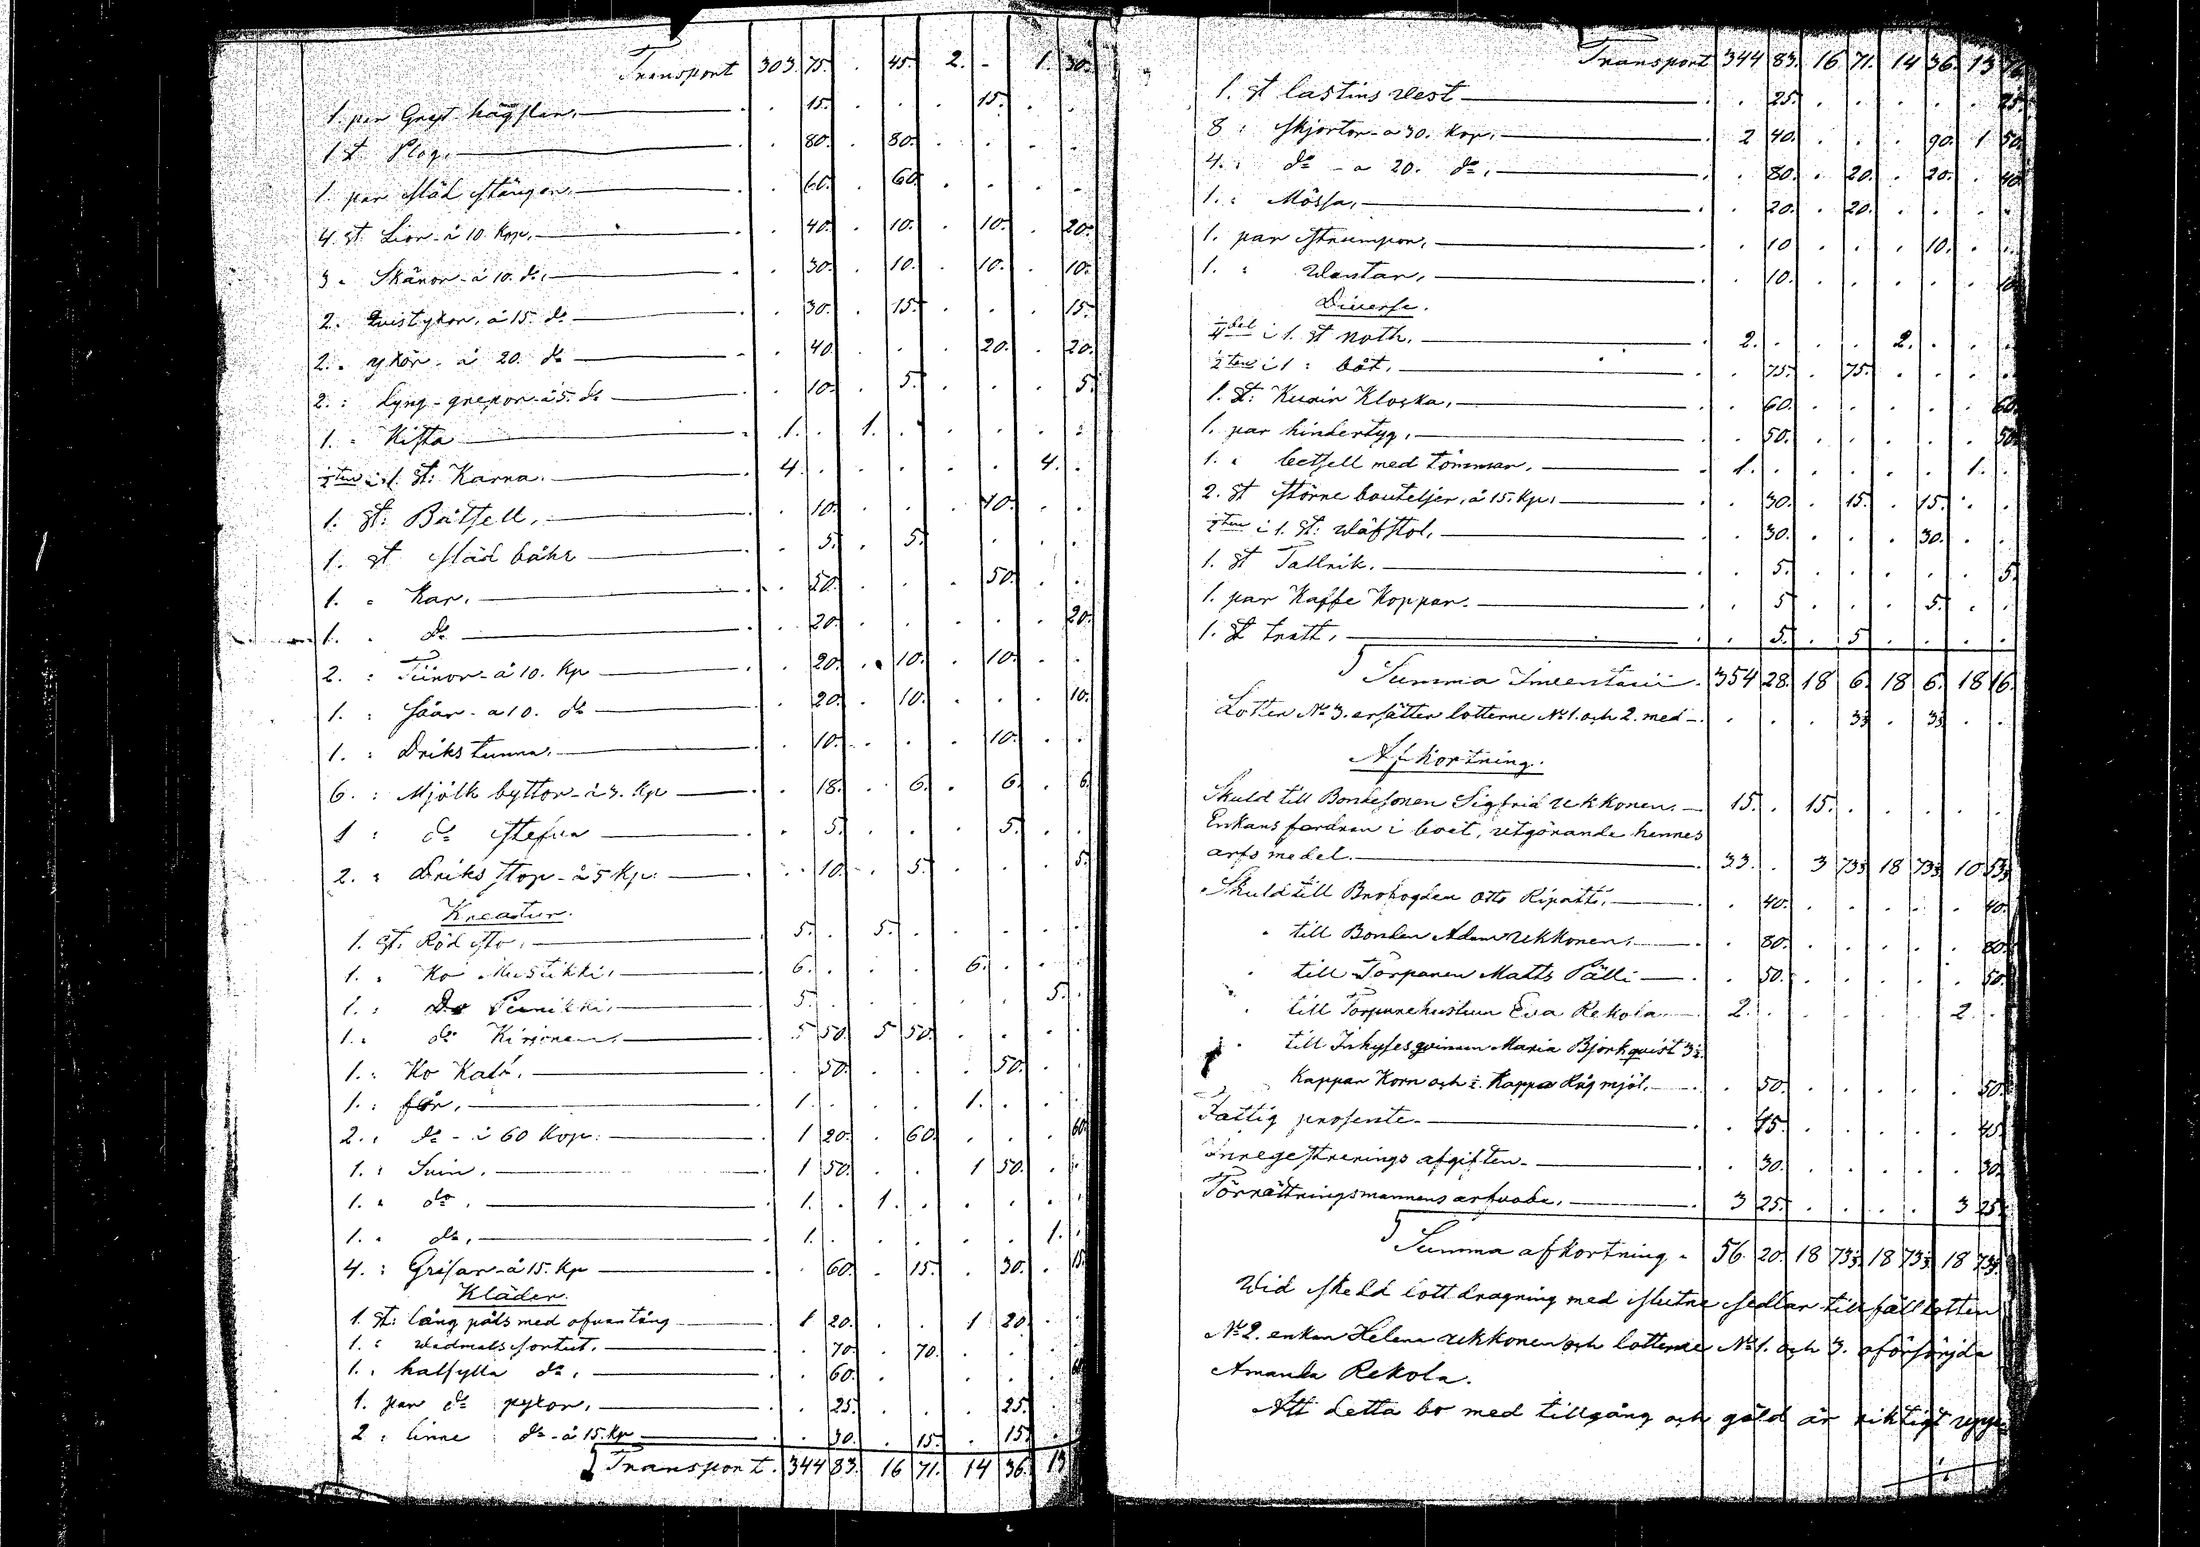 Transport 303. 75. . 45. 2. - 1. 30.
1. par Gref häfflar, . . 15. . . . 15. . .
1 st Plog, . . 80. . 80. . . . .
1. par Släd stängor, . . 60. . 60. . . . .
4. st Lior - à 10 Kop, . . 40. . 10. . 10. . 20.
3 " Skäror - à 10. do, . . 30. . 10. . 10. . 10.
2. " Quistyxor, à 15. do . . 30. . 15. . . . 15.
2. " yxor - à 20. do . . 40. . . . 20. . 20.
2. : Lyng - grepor - à 5. do . . 10. . 5. . . . 5.
1. " Kista . 1. . 1. . . . . .
1/2ten i 1. st: Karna. . 4. . . . . . 4. .
1. st: Bätsell, . . 10. . . . 10. . .
1. st Släd båhr . . 5. . 5. . . . .
1. " Kar, . . 50. . . . 50. . .
1. " do . . 20. . . . . . 20.
2. : Tiinor - à 10. Kp . . 20. . 10. . 10. . .
1. : såar - a 10. do . . 20. . 10. . . . 10.
1. : Driks tunna, . . 10. . . . 10. . .
6. : Mjölk byttor - à 3. Kp . . 18. . 6. . 6. . 6.
1 : do stefva . . 5. . . . 5. . .
2. " Driks stop - à 5 Kp: . . 10. . 5. . . . 5.
Kreatur.
1. st. Röd sto, 5. . 5. . . . . .
1. " Ko Mustikki, 6. . . . 6. . . .
1. : Do Punikki, 5. . . . . . 5. .
1. " do Kirjonen, 5 50. 5 50. . . . .
1. : Ko Kalf, . 50. . . . 50. . .
1. : får, 1. . . . 1. . . .
2. : do - à 60 Kop: 1 20. . 60. . . . 60.
1. : Suin. 1 50. . . 1 50. . .
1. " do. 1. . 1. . . . . .
1. " do, 1. . . . . . 1. .
4. : Grisar - à 15. Kp . 60. . 15. . 30. . 15.
Kläder.
1. st: lång päls med ofvantång 1 20. . . 1 20 . .
1. " wadmals sortut. . 70. . 70. . . . .
1. : halfylla do, . 60. . . . . . 60
1. par do pyxor, . 25. . . . 25. . .
2 : linne do - à 15. Kp . 30. . 15. . 15. . .
Transport. 344 83. 16 71. 14 36. 13
Transport 344 83. 16 71. 14 36. 13
1. st lastins vest . . 25. . . . . . 25.
8 : Skjortor - a 30. Kop, . 2 40. . . . 90. 1 50.
4. : do - a 20. do, . . 80. . 20. . 20. . 40
1. : Mössa, . . 20. . 20. . . . .
1. par strumpor, . . 10 . . . 10. . .
1. : Wantar, . . 10. . . . . . 10.
Diverse.
1/4del i 1. st noth. . 2. . . . 2. . . .
1/2ten i 1 : båt, . . 75. . 75. . . . .
1. st: Kuxin Klocka, . . 60. . . . . . 60.
1. par hindertyg, . . 50. . . . . . 50.
1. " beetsell med tömmar, . 1. . . . . . 1. .
2. st större bouteljer, à 15. Kp, . . 30. . 15. . 15. . .
i 1. st: wäfstol. . . 30. . . . 30. . .
1. st Tallrik. . . 5. . . . . . 5.
1. par Kaffe Koppar. . . 5 . . . 5. . .
1. st tratt, . . 5. . 5 . . . .
Summa Inventarii. 354 28. 18 6. 18 6. 18 16.
Lotten No 3. ersätter lotterne No 1. och 2. med . . . . 3 1/3 . 3 1/3 . .
Afkortning.
Skuld till Bondesonen Sigfrid Ukkonen. 15. . 15. . . . . .
Enkans fordran i boet, utgörande hennes
arfs medel. 33. . 3 73 1/3 18 73 1/3 10 53 1/3
Skuld till Brofogden Otto Ripatti, . 40. . . . . . 40.
" till Bonden Adam Ukkonen, . 80. . . . . . 80.
" till Torparen Matts Pälli . 50. . . . . . 50.
" till Torparehustrun Eva Rekola 2. . . . . . 2 .
" till Inhyses qvinnan Maria Björkqvist 3 1/2
Kappar Korn och 1/2 Kappa Råg mjöl. . 50. . . . . . 50.
Fattig prosente. . 45. . . . . . 45.
Inregestrerings afgiften. . 30. . . . . . 30.
Förrättningsmannens arfvode, 3 25. . . . . 3 25.
Summa afkortning. 56. 20. 18 73 1/3. 18 73 1/3. 18 73 1/3.
Wid skedd lott dragning med slutne sedlar tillföll lotten
No 2. enkan Helena Ukkonen och lotterne No 1. och 3. oförsörjda
Amanda Rekola.
Att detta bo med tillgång och gäld är riktigt